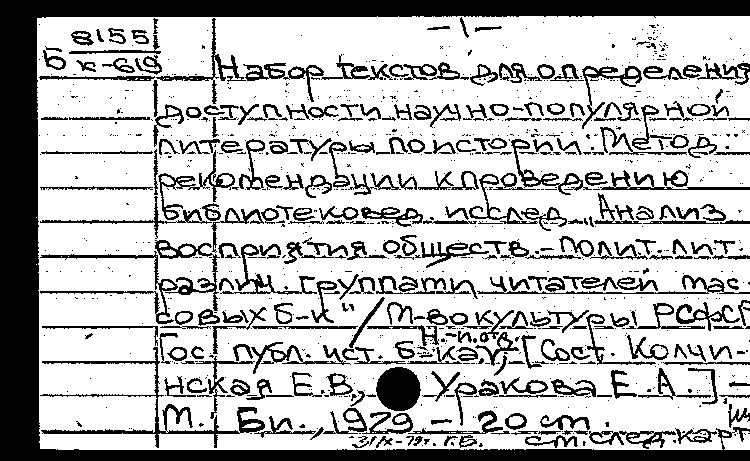 — 1 —
Б 8155
к-619
Набор текстов для определения
доступности научно-популярной
литературы по истории: Метод.
рекомендации к проведению
библиотековед. исслед. „Анализ
восприятия обществ.-полит. лит.
различ. группами читателей мас-
совых б-к" / М-во культуры РСФСР
Гос. публ. ист. б-ка, Н.-и. отд.; [Сост. Колчи-
нская Е.В., Уракова Е.А.]. —
М.: Б.и., 1979 - 20 ст.
31/X-79г. Г.Б. см. след. карт